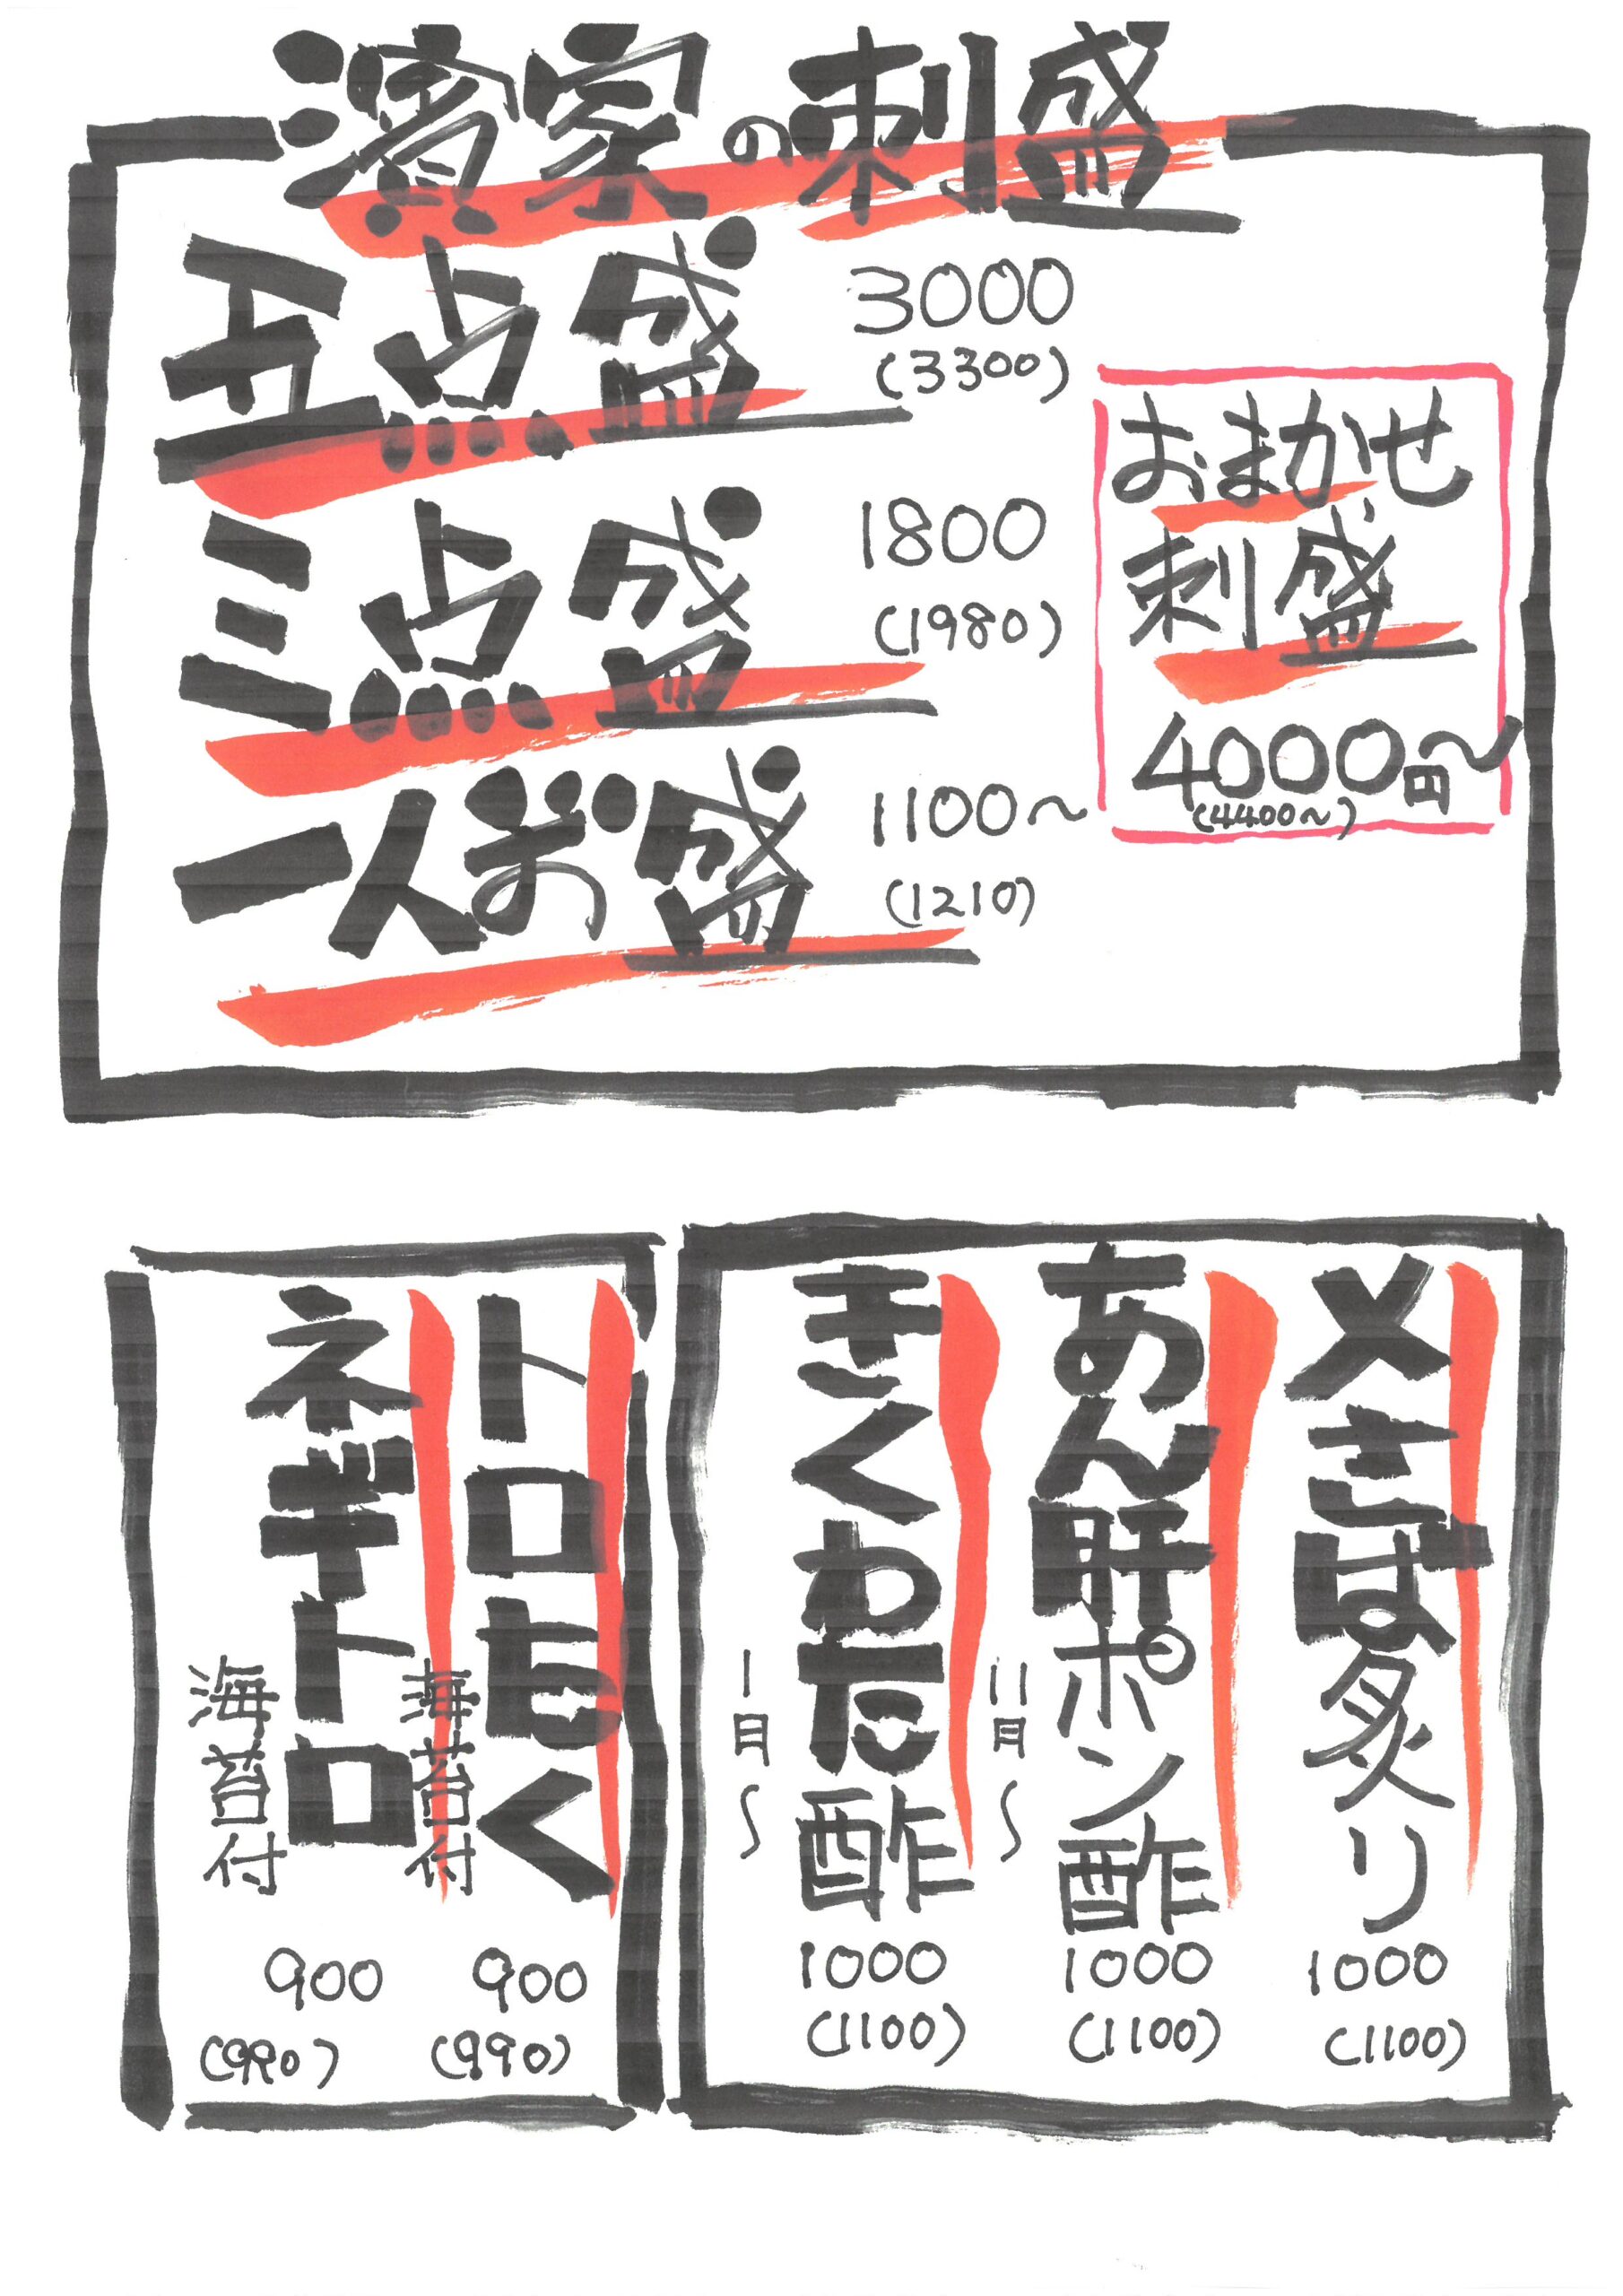 濱家の刺盛
五点盛 3000
(3300)
三点盛 1800
(1980)
一人ぼ盛 1100～
(1210)
おまかせ
刺盛
4000円～
(4400～)
〆さば炙り
1000
(1100)
あん肝ポン酢
11月～
1000
(1100)
きくわた酢
1月～
1000
(1100)
トロたく
海苔付
900
(990)
ネギトロ
海苔付
900
(990)